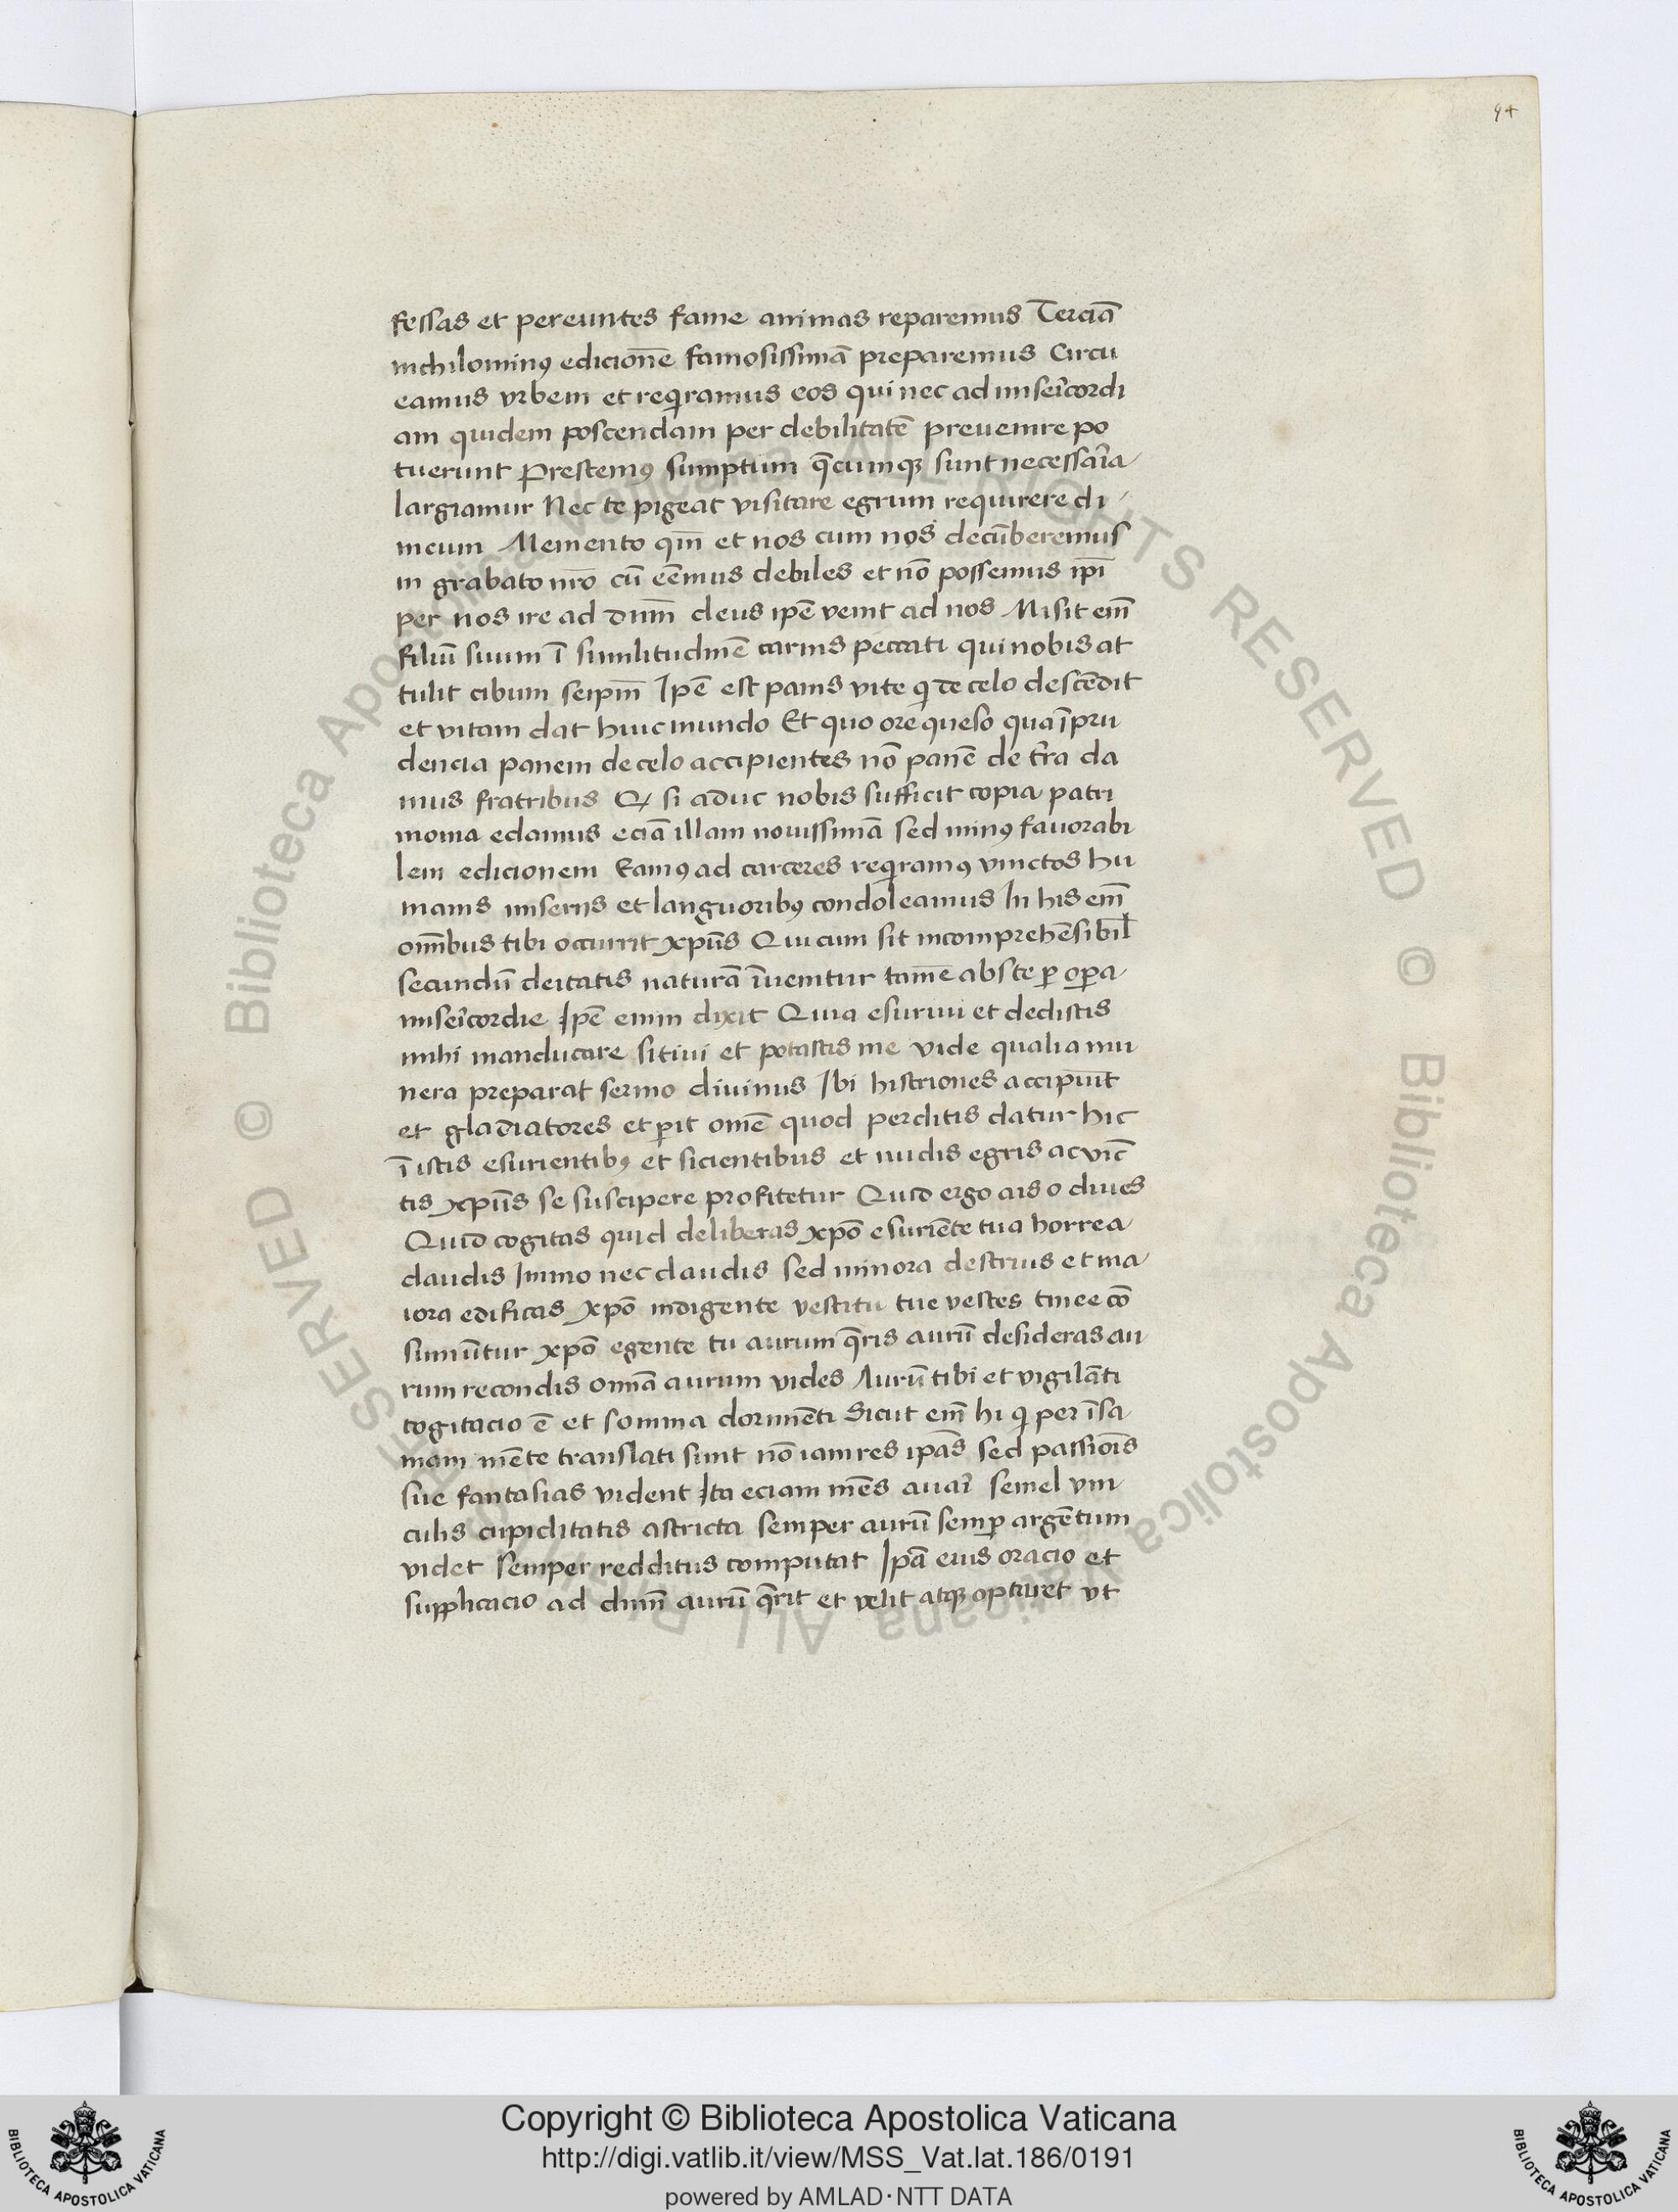 94
fessas et pereuntes fame animas reparemus Terciā
nichilominꝰ edicionē famosissimā preparemus Circu
eamus vrbem et reqͥramus eos qui nec ad miser̄icordi
am quidem poscendam per debilitatē preuenire po
tuerunt Prestemꝰ sumptum q̄cumqꝫ sunt necessar̄ia
largiamur Nec te pigeat visitare egrum requirere di
meum Memento qm̄ et nos cum nos decūberemus
in grabato nr̄o cū eēmus debiles et nō possemus ip̄i
per nos ire ad dnm̄ deus ip̄e venit ad nos Misit em̄
filiū suum ī similitudinē carnis peccati qui nobis at
tulit cibum seip̄m Ip̄e est panis vite qͥ de celo descēdit
et vitam dat huic mundo Et quo ore queso qua īpru
dencia panem de celo accipientes nō panē de t̄ra da
mus fratribus Qͥ si aduc nobis sufficit copia patri
monia edamus eciā illam nouissimā sed minꝰ fauorabi
lem edicionem Eamꝰ ad carceres reqͥramꝰ vinctos hu
manis miserijs et languoribꝰ condoleamus In his em̄
om̄ibus tibi occurrit xp̄us Qui cum sit incomprehēsibil̄
secundū deitatis naturā īuenitur tamē abs te ꝑ oꝑa
miser̄icordie Ip̄e enim dixit Quia esuriui et dedistis
mihi manducare sitiui et potastis me vide qualia mu
nera preparat sermo diuinus Ibi histriones accipiūt
et gladiatores et ꝑit om̄e quod perditis datur hic
ī istis esurientibꝰ et sicientibus et nudis egris ac vīc
tis xp̄us se suscipere profitetur Quid ergo ais o diues
Quid cogitas quid deliberas xp̄o esuriēte tua horrea
claudis Immo nec claudis sed minora destruis et ma
iora edificas xp̄o indigente vestitu tue vestes tinee cō
sumūtur xp̄o egente tu aurum q̄ris aurū desideras au
rum recondis om̄ia aurum vides Aurū tibi et vigilāti
cogitacio ē et somnia dormiēti Sicut em̄ hi qͥ per īsa
niam mēte translati sunt nō iam res ip̄as sed passiōis
sue fantasias vident Ita eciam mēs auar̄i semel vin
culis cupiditatis astricta semper aurū semꝑ argētum
videt semper redditus computat Ip̄a eius oracio et
supplicacio ad dnm̄ aurū q̄rit et velit atqꝫ optaret vt
Copyright © Biblioteca Apostolica Vaticana
http://digi.vatlib.it/view/MSS_Vat.lat.186/0191
powered by AMLAD·NTT DATA